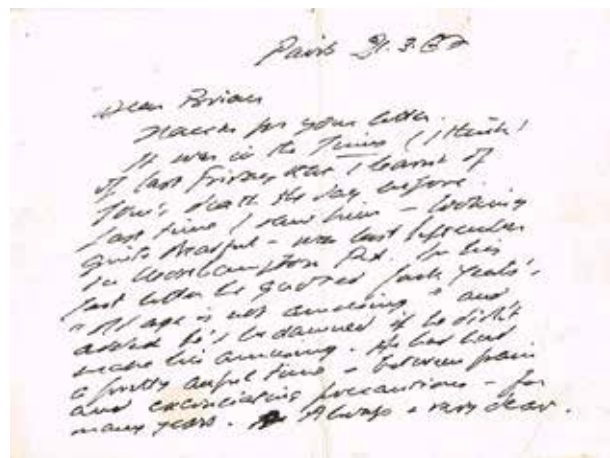 Paris 21.3.67
Dear Brian
Thanks for your letter.
It was in the Times (I think)
of last Friday that I learnt of
Tom's death the day before.
Last time I saw him - looking
quite dreadful - was last September
in Rd. In his
last letter he quoted Jack Yeats's
"Old age is not amusing" and
added he'd be damned if he didn't
make his amusing. He has had
a pretty awful time - between pain
and excruciating precautions - for
many years. Always a very dear.